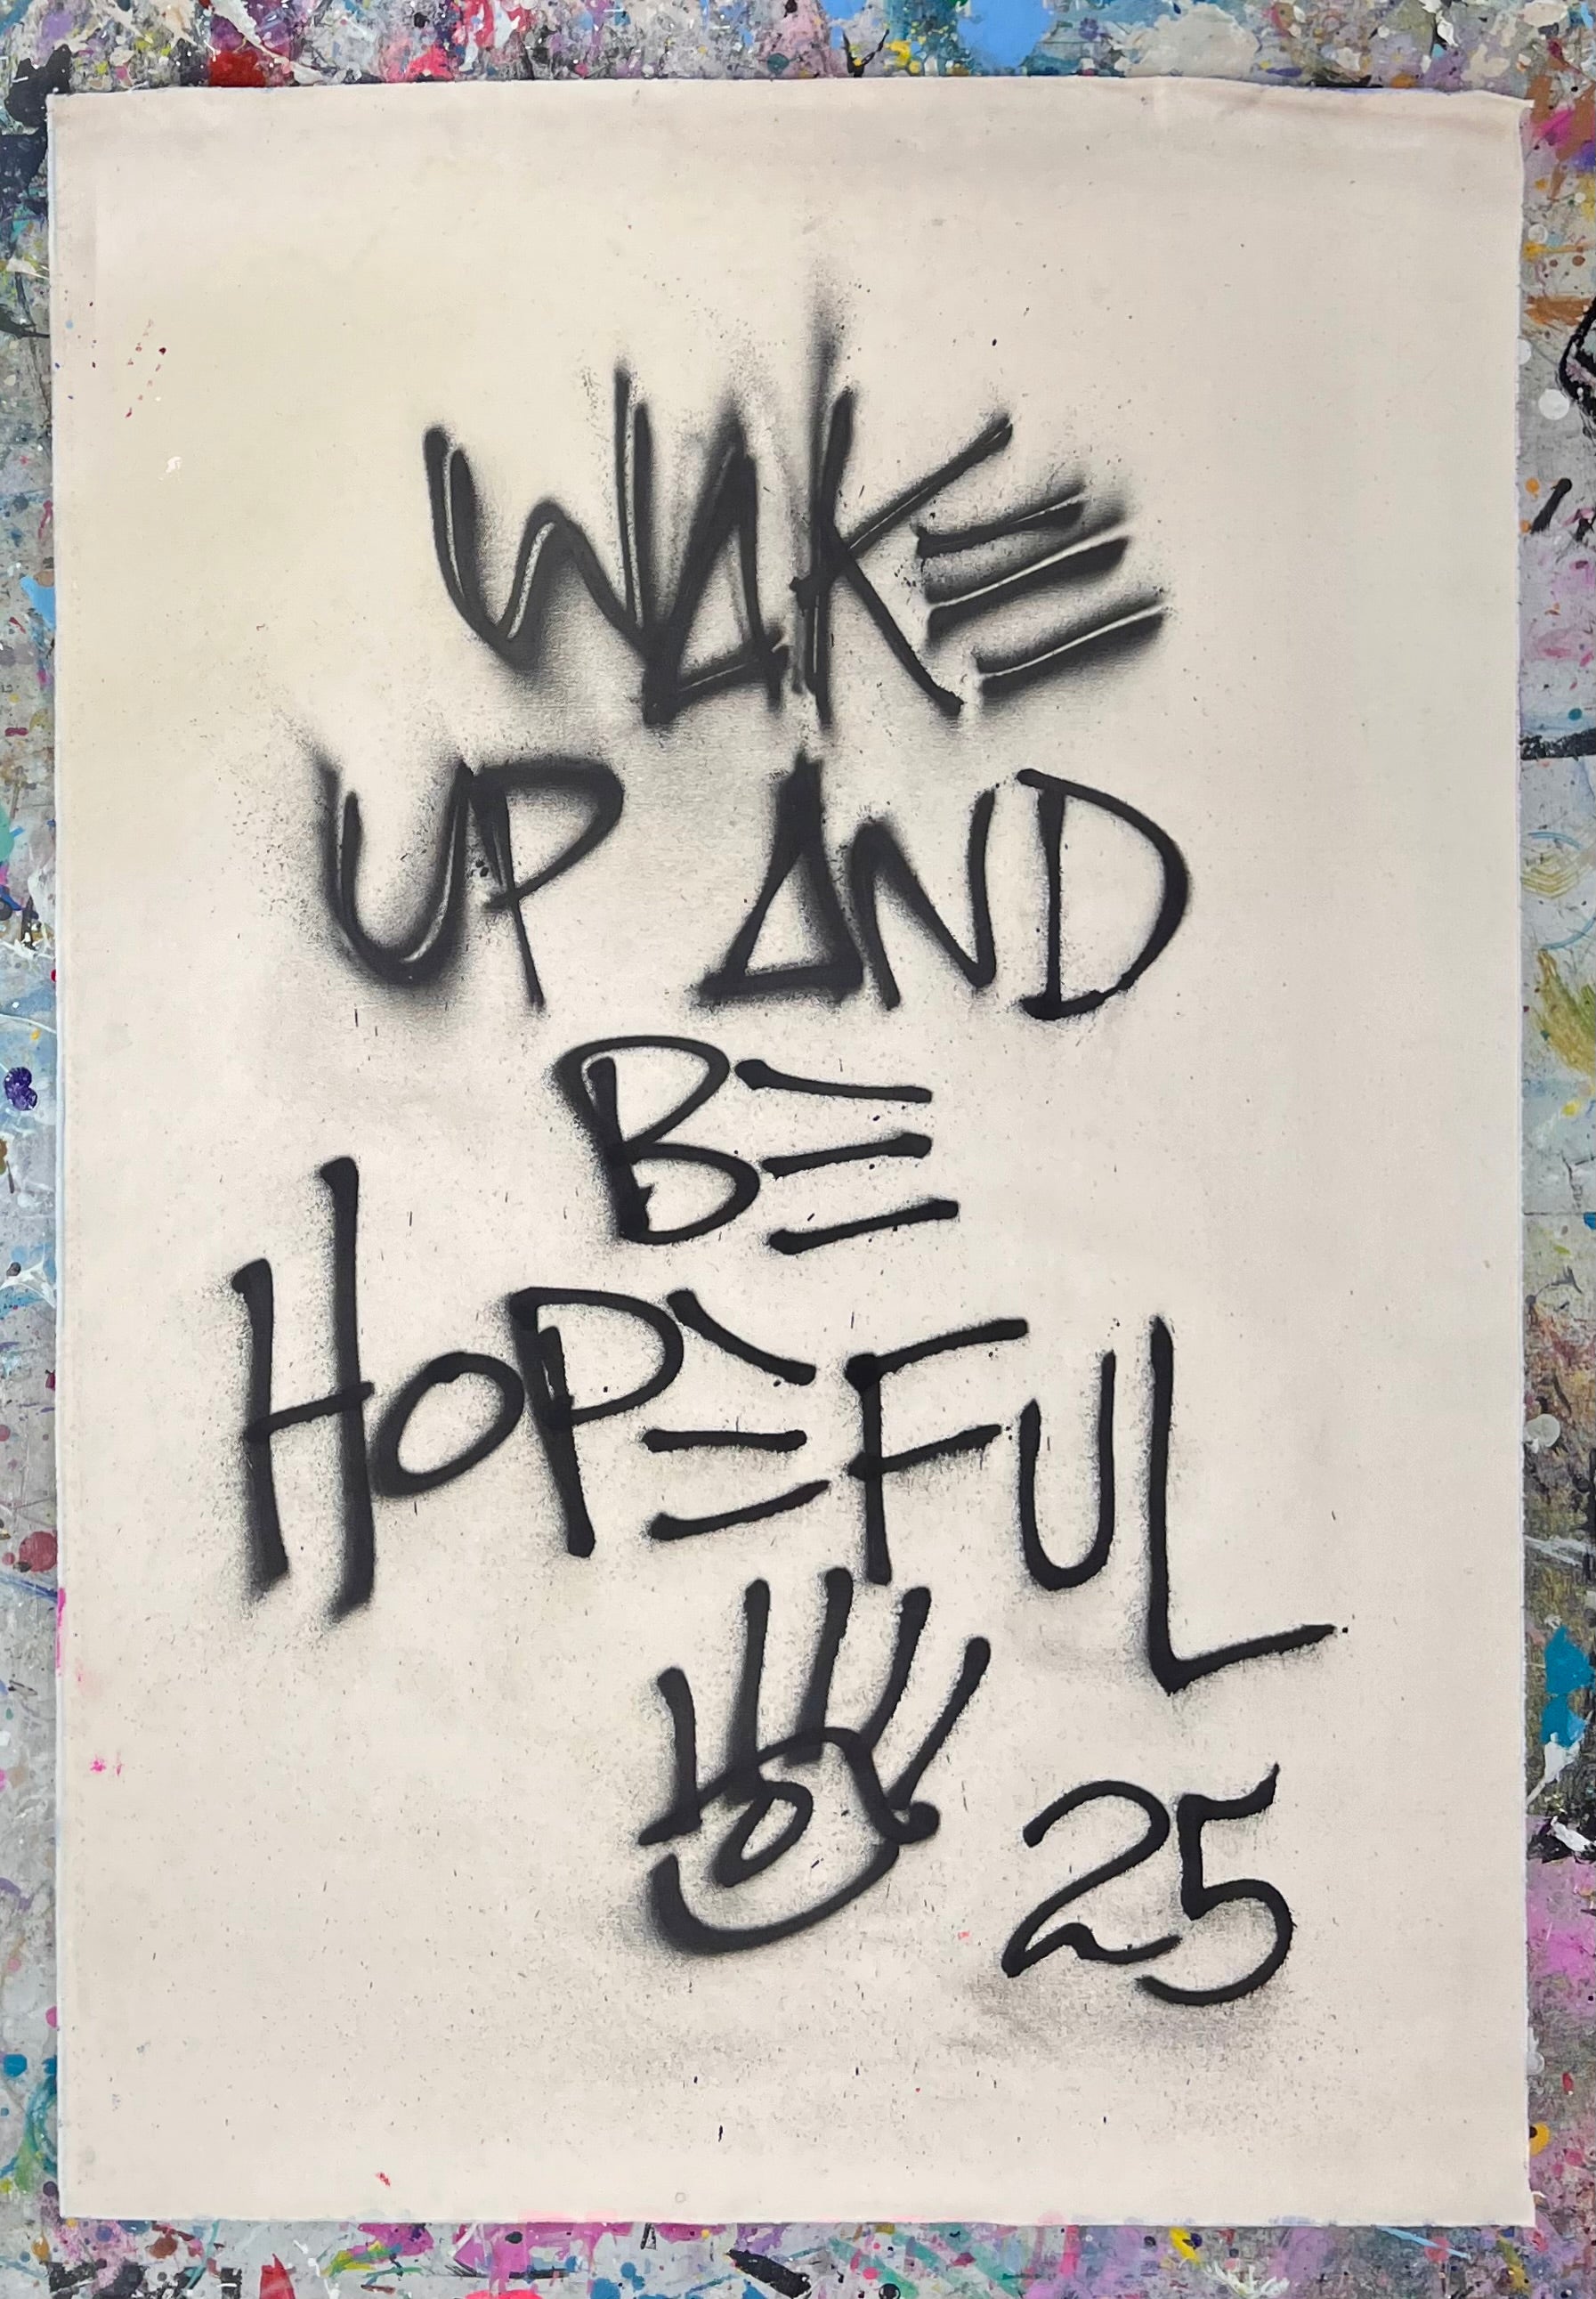 WAKE
UP AND
BE
HOPEFUL
25